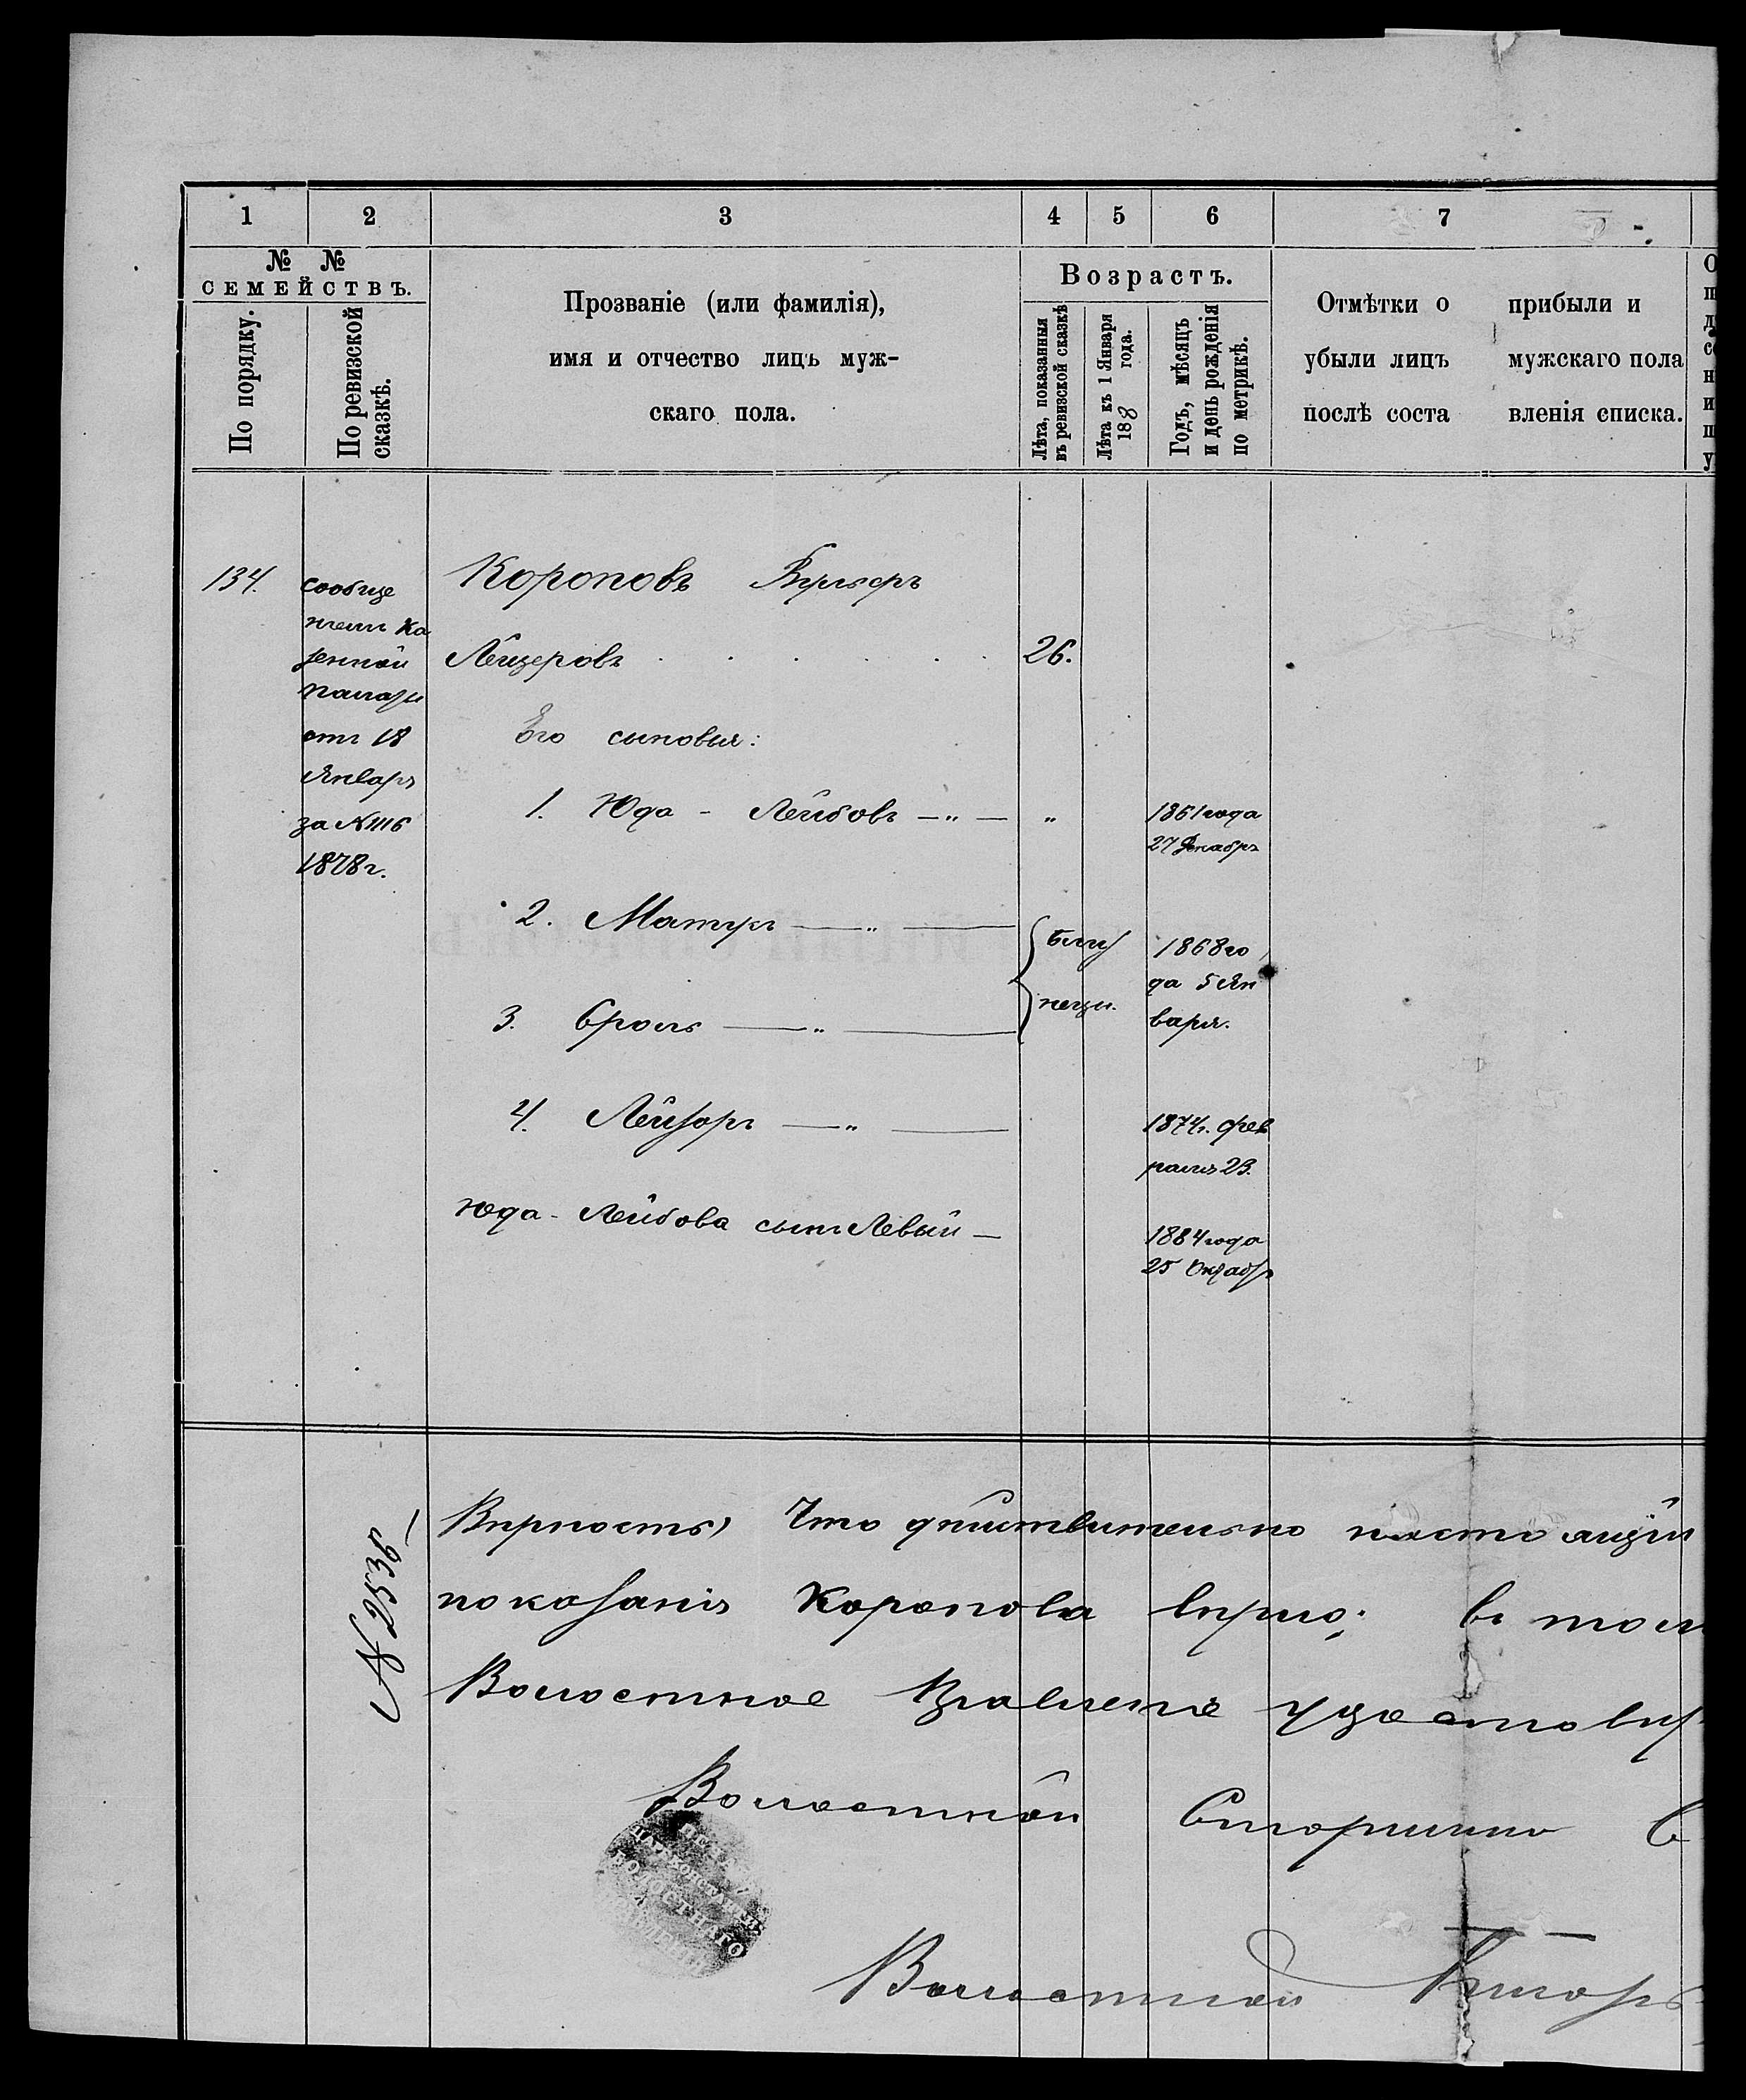 1 2 3 4 5 6 7
№ №
СЕМЕЙСТВЪ.
По порядку.
По ревизской
сказкѣ.
Прозваніе (или фамилія),
имя и отчество лицъ муж-
скаго пола.
Возрастъ.
Лѣта, показанныя
въ ревизской сказкѣ
Лѣта къ 1 Января
188 года.
Годъ, мѣсяцъ
и день рожденія
по метрикѣ.
Отмѣтки о прибыли и
убыли лицъ мужскаго пола
послѣ соста вленія списка.
134.
сообще
нiем Ка
зенной
палаты
отъ 18
Января
за № 1116
1878 г.
Короповъ
Лейзеровъ . . . . . . 26.
Его сыновья:
1. Юда - Лейбовъ — „ — „ 1861 года
27 Декабря
2. Матусъ — „ —
близ
нецы.
1868 го
да 5 Ян
варя.
3. Сроль — „ —
4. Лейзоръ — „ — 1874 г. Фев
раля 23.
Юда - Лейбова сынъ Левый — 1884 года
25 Октября
№ 2536
Вѣрность, Что дѣйствительно настоящiй
показанiя Коропова вѣрно; въ том
Волостное Правленiе удостовѣр
Волостной Старшина С
ВОЛОСТНАГО
Волостной Писарь